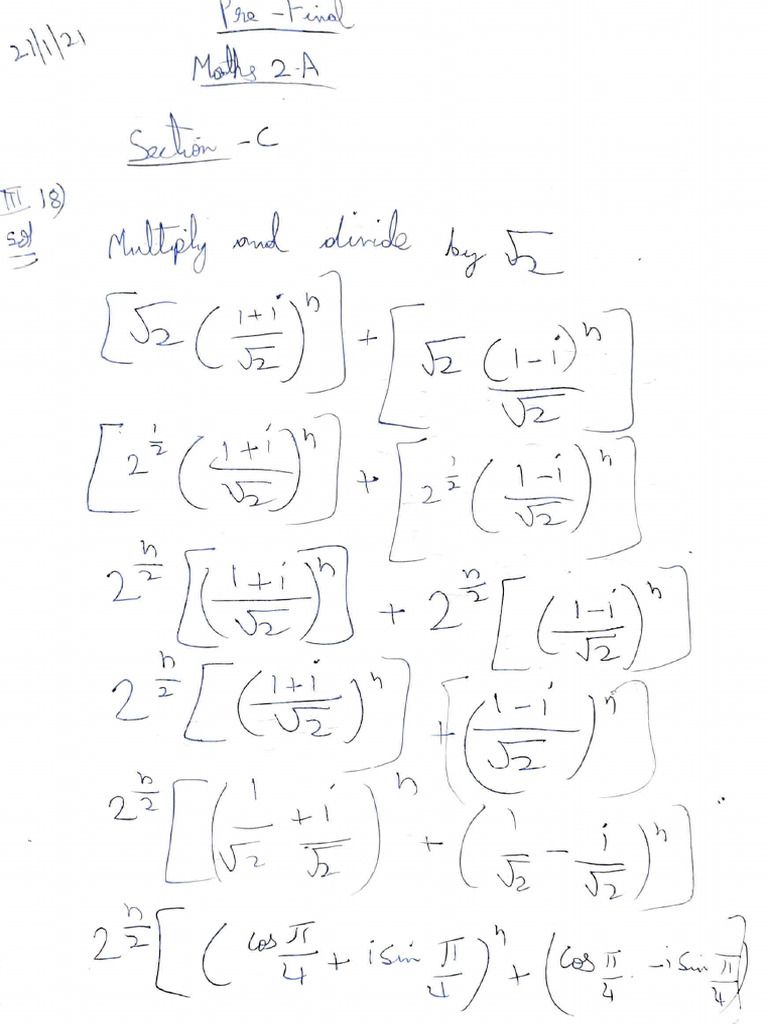 Pre-Final
21/1/21
Maths 2-A
Section-C
III 18)
Sol Multiply and divide by √2
[√2 ((1+i)/√2)^n] + [√2 (1-i)^n/√2]
[2^(1/2) ((1+i)/√2)^n] + [2^(1/2) ((1-i)/√2)^n]
2^(n/2) [((1+i)/√2)^n] + 2^(n/2) [((1-i)/√2)^n]
2^(n/2) [((1+i)/√2)^n] + [((1-i)/√2)^n]
2^(n/2) [(1/√2 + i/√2)^n + (1/√2 - i/√2)^n]
2^(n/2) [(cos π/4 + i sin π/4)^n + (cos π/4 - i sin π/4)]